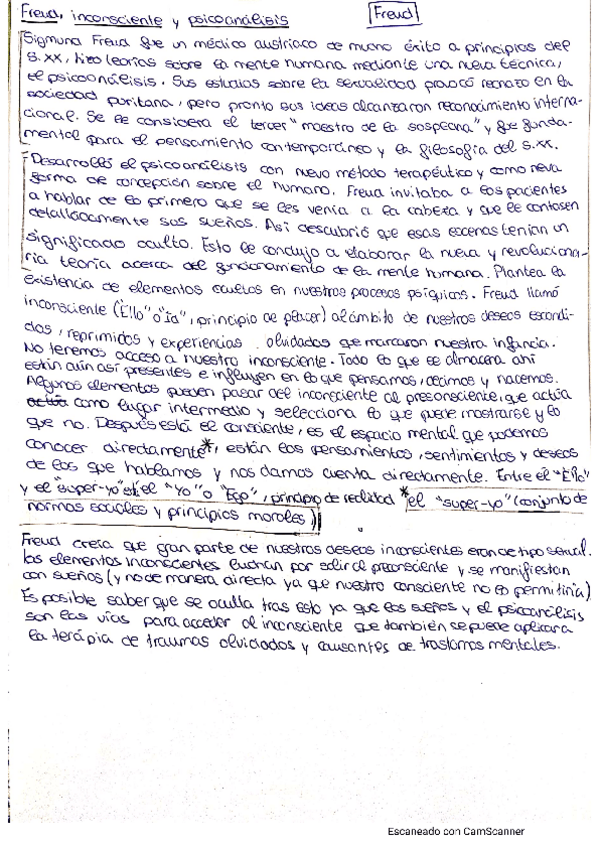 Freud, inconsciente y psicoanálisis
Freud
Sigmund Freud fue un médico austriaco de mucho éxito a principios del
S. XX, hizo teorías sobre la mente humana mediante una nueva técnica,
el psicoanálisis. Sus estudios sobre la sexualidad provocó rechazo en la
sociedad puritana, pero pronto sus ideas alcanzaron reconocimiento interna-
cional. Se le considera el tercer "maestro de la sospecha" y fue funda-
mental para el pensamiento contemporáneo y la filosofía del S.XX.
Desarrolló el psicoanálisis con nuevo método terapéutico y como nueva
forma de concepción sobre el humano. Freud invitaba a los pacientes
a hablar de lo primero que se les venía a la cabeza y que le contasen
detalladamente sus sueños. Así descubrió que esas escenas tenían un
significado oculto. Esto le condujo a elaborar la nueva y revoluciona-
ria teoría acerca del funcionamiento de la mente humana. Plantea la
existencia de elementos ocultos en nuestros procesos psíquicos. Freud llamó
inconsciente ("Ello" o "Id", principio de placer) al ámbito de nuestros deseos escondi-
dos, reprimidos y experiencias olvidadas que marcaron nuestra infancia.
No tenemos acceso a nuestro inconsciente. Todo lo que se almacena ahí
están aún así presentes e influyen en lo que pensamos, decimos y hacemos.
Algunos elementos pueden pasar del inconsciente al preconsciente, que actúa
como lugar intermedio y selecciona lo que puede mostrarse y lo
que no. Después está el consciente, es el espacio mental que podemos
conocer directamente*, están los pensamientos, sentimientos y deseos
de los que hablamos y nos damos cuenta directamente. Entre el "Ello"
y el "super-yo" está el "Yo" o "Ego", principio de realidad *el "super-yo" (conjunto de
normas sociales y principios morales)
Freud creía que gran parte de nuestros deseos inconscientes eran de tipo sexual.
los elementos inconscientes luchan por salir al preconsciente y se manifiestan
con sueños (y no de manera directa ya que nuestro consciente no lo permitiría)
Es posible saber que se oculta tras esto ya que los sueños y el psicoanálisis
son las vías para acceder al inconsciente que también se puede aplicar a
la terápia de traumas olvidados y causantes de trastornos mentales.
Escaneado con CamScanner